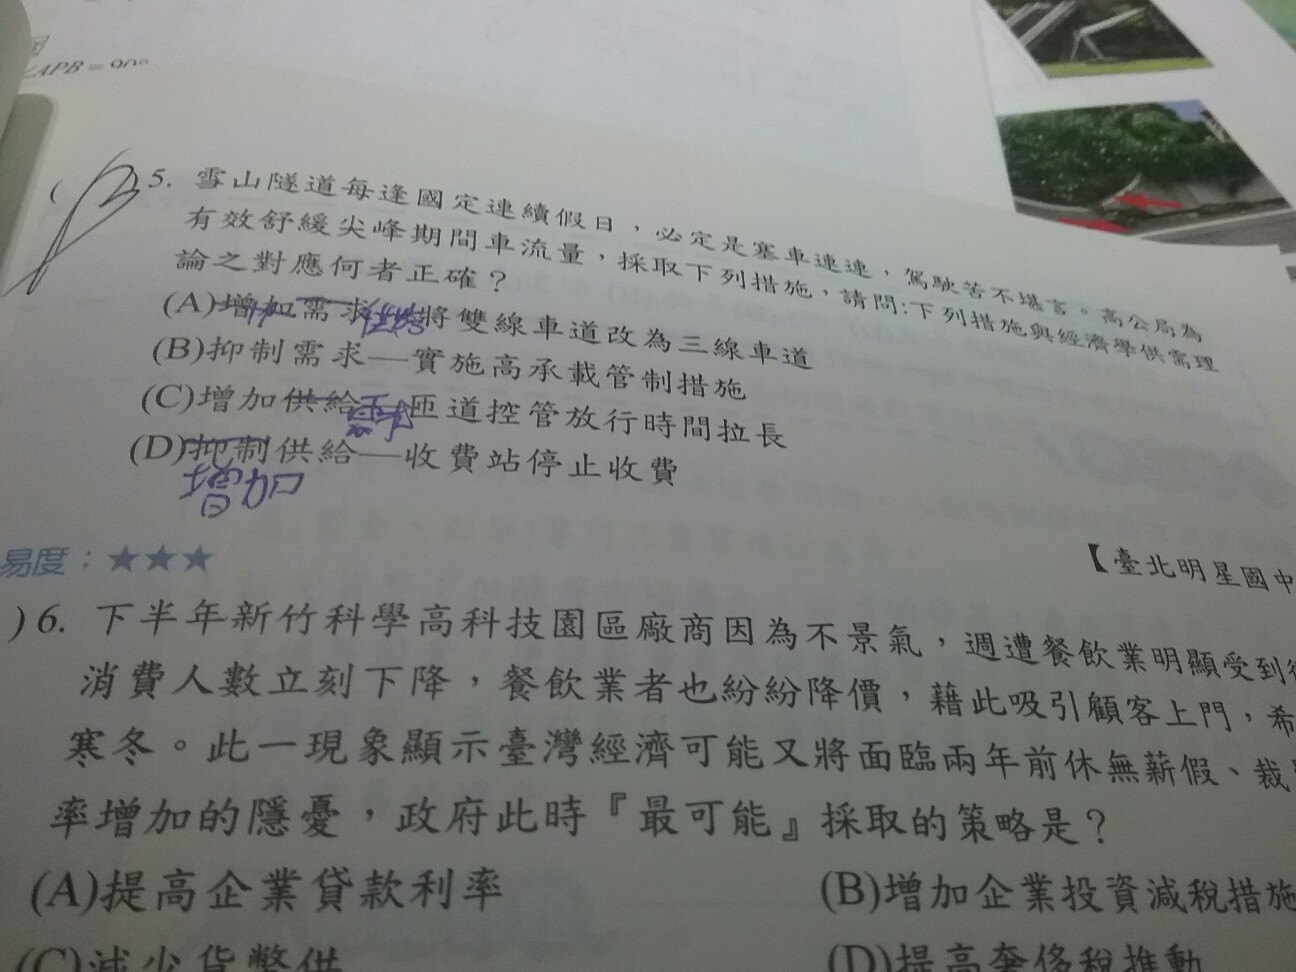 APB = 90°
5. 雪山隧道每逢國定連續假日，必定是塞車連連，駕駛苦不堪言。高公局為
有效舒緩尖峰期間車流量，採取下列措施，請問:下列措施與經濟學供需理
論之對應何者正確？
(A)增加需求供給將雙線車道改為三線車道
(B)抑制需求—實施高承載管制措施
(C)增加供給 匝道控管放行時間拉長
(D)抑制供給—收費站停止收費
增加
易度：★★★
【臺北明星國中
)6. 下半年新竹科學高科技園區廠商因為不景氣，週遭餐飲業明顯受到
消費人數立刻下降，餐飲業者也紛紛降價，藉此吸引顧客上門，希
寒冬。此一現象顯示臺灣經濟可能又將面臨兩年前休無薪假、裁
率增加的隱憂，政府此時『最可能』採取的策略是？
(A)提高企業貸款利率 (B)增加企業投資減稅措施
(C)減少貨幣供 (D)提高奢侈稅推動